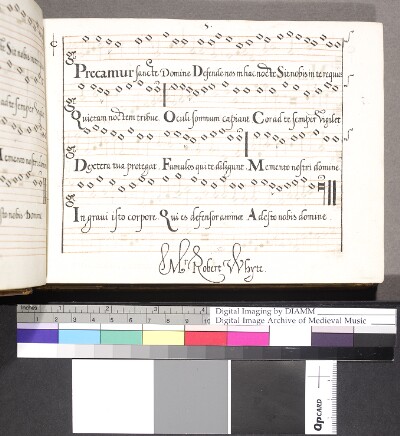 Precamur sancte Domine Defende nos in hac nocte Sit nobis in te requi
Quietam noctem tribue Oculi somnum capiant Cor ad te semper vigilet
Dextera tua protegat Famulos qui te diligunt Memento nostri domine
In gravi isto corpore Qui es defensor animae Adesto nobis domine
Mr. Robert Whyte.
Digital Imaging by DIAMM
Digital Image Archive of Medieval Music
inches 1 2 3 4
1 2 3 4 5 6 7 8 9 10
QPCARD